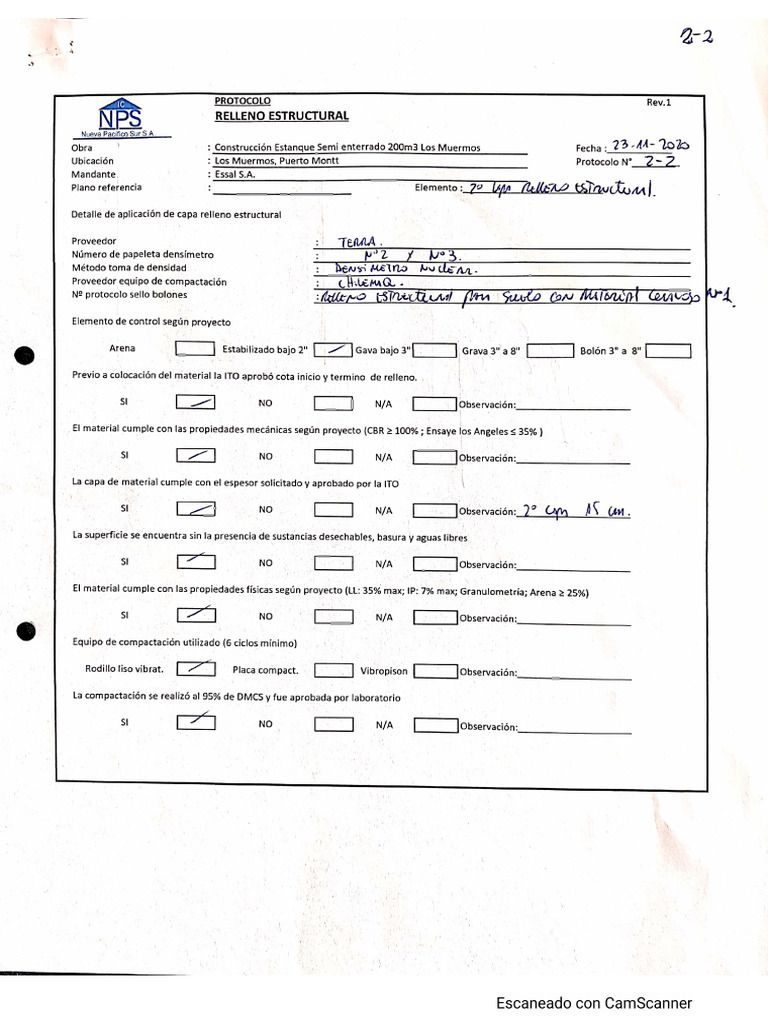 2-2
IC
NPS
Nueva Pacifico Sur S.A.
PROTOCOLO
RELLENO ESTRUCTURAL
Rev.1
Obra : Construcción Estanque Semi enterrado 200m3 Los Muermos Fecha : 23-11-2020
Ubicación : Los Muermos, Puerto Montt Protocolo N° 2-2
Mandante : Essal S.A.
Plano referencia : Elemento : 2° Capa Relleno Estructural.
Detalle de aplicación de capa relleno estructural
Proveedor : TERRA.
Número de papeleta densímetro : N°2 y N°3.
Método toma de densidad : DENSIMETRO NUCLEAR.
Proveedor equipo de compactación : CHILEMAQ.
Nº protocolo sello bolones : Relleno Estructural para Suelo con Material N°1
Elemento de control según proyecto
Arena Estabilizado bajo 2" Gava bajo 3" Grava 3" a 8" Bolón 3" a 8"
Previo a colocación del material la ITO aprobó cota inicio y termino de relleno.
SI NO N/A Observación:
El material cumple con las propiedades mecánicas según proyecto (CBR ≥ 100% ; Ensaye los Angeles ≤ 35% )
SI NO N/A Observación:
La capa de material cumple con el espesor solicitado y aprobado por la ITO
SI NO N/A Observación: 2° capa 15 cm.
La superficie se encuentra sin la presencia de sustancias desechables, basura y aguas libres
SI NO N/A Observación:
El material cumple con las propiedades físicas según proyecto (LL: 35% max; IP: 7% max; Granulometría; Arena ≥ 25%)
SI NO N/A Observación:
Equipo de compactación utilizado (6 ciclos mínimo)
Rodillo liso vibrat. Placa compact. Vibropison Observación:
La compactación se realizó al 95% de DMCS y fue aprobada por laboratorio
SI NO N/A Observación:
Escaneado con CamScanner